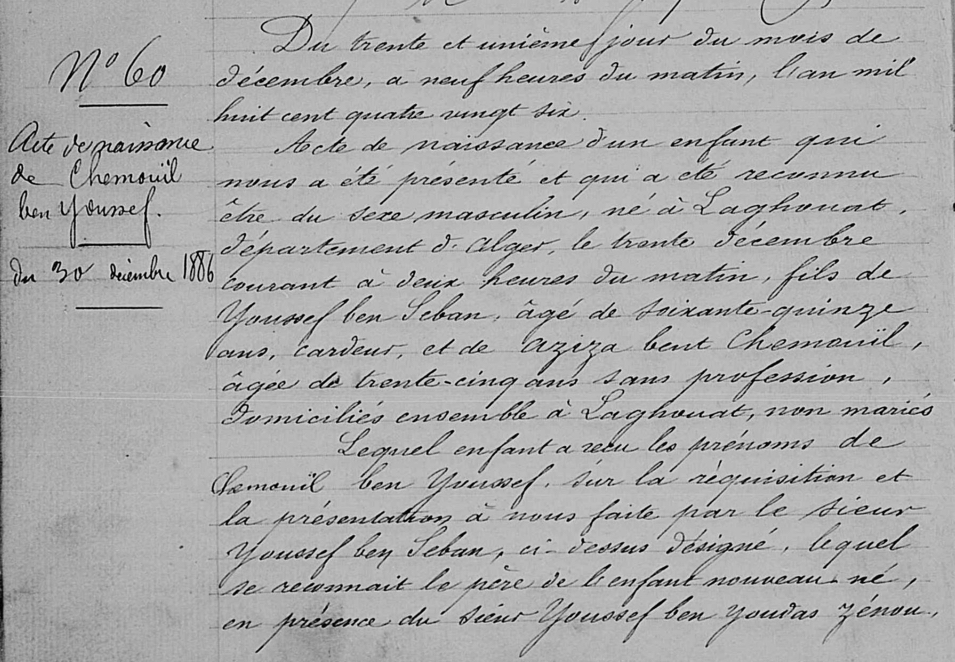 N° 60
Acte de naissance
de Chemouïl
ben Youssef.
du 30 décembre 1886
Du trente et unième jour du mois de
décembre, a neuf heures du matin, l'an mil
huit cent quatre vingt six.
Acte de naissance d'un enfant qui
nous a été présenté et qui a été reconnu
être du sexe masculin, né à Laghouat,
département d'Alger, le trente décembre
courant à deux heures du matin, fils de
Youssef ben Seban, âgé de soixante-quinze
ans, cardeur, et de Aziza bent Chemouïl,
âgée de trente-cinq ans sans profession,
domiciliés ensemble à Laghouat, non mariés
Lequel enfant a reçu les prénoms de
Chemouïl ben Youssef, sur la réquisition et
la présentation à nous faite par le sieur
Youssef ben Seban, ci-dessus désigné, lequel
se reconnait le père de l'enfant nouveau-né,
en présence du sieur Youssef ben Youdas Zénou,